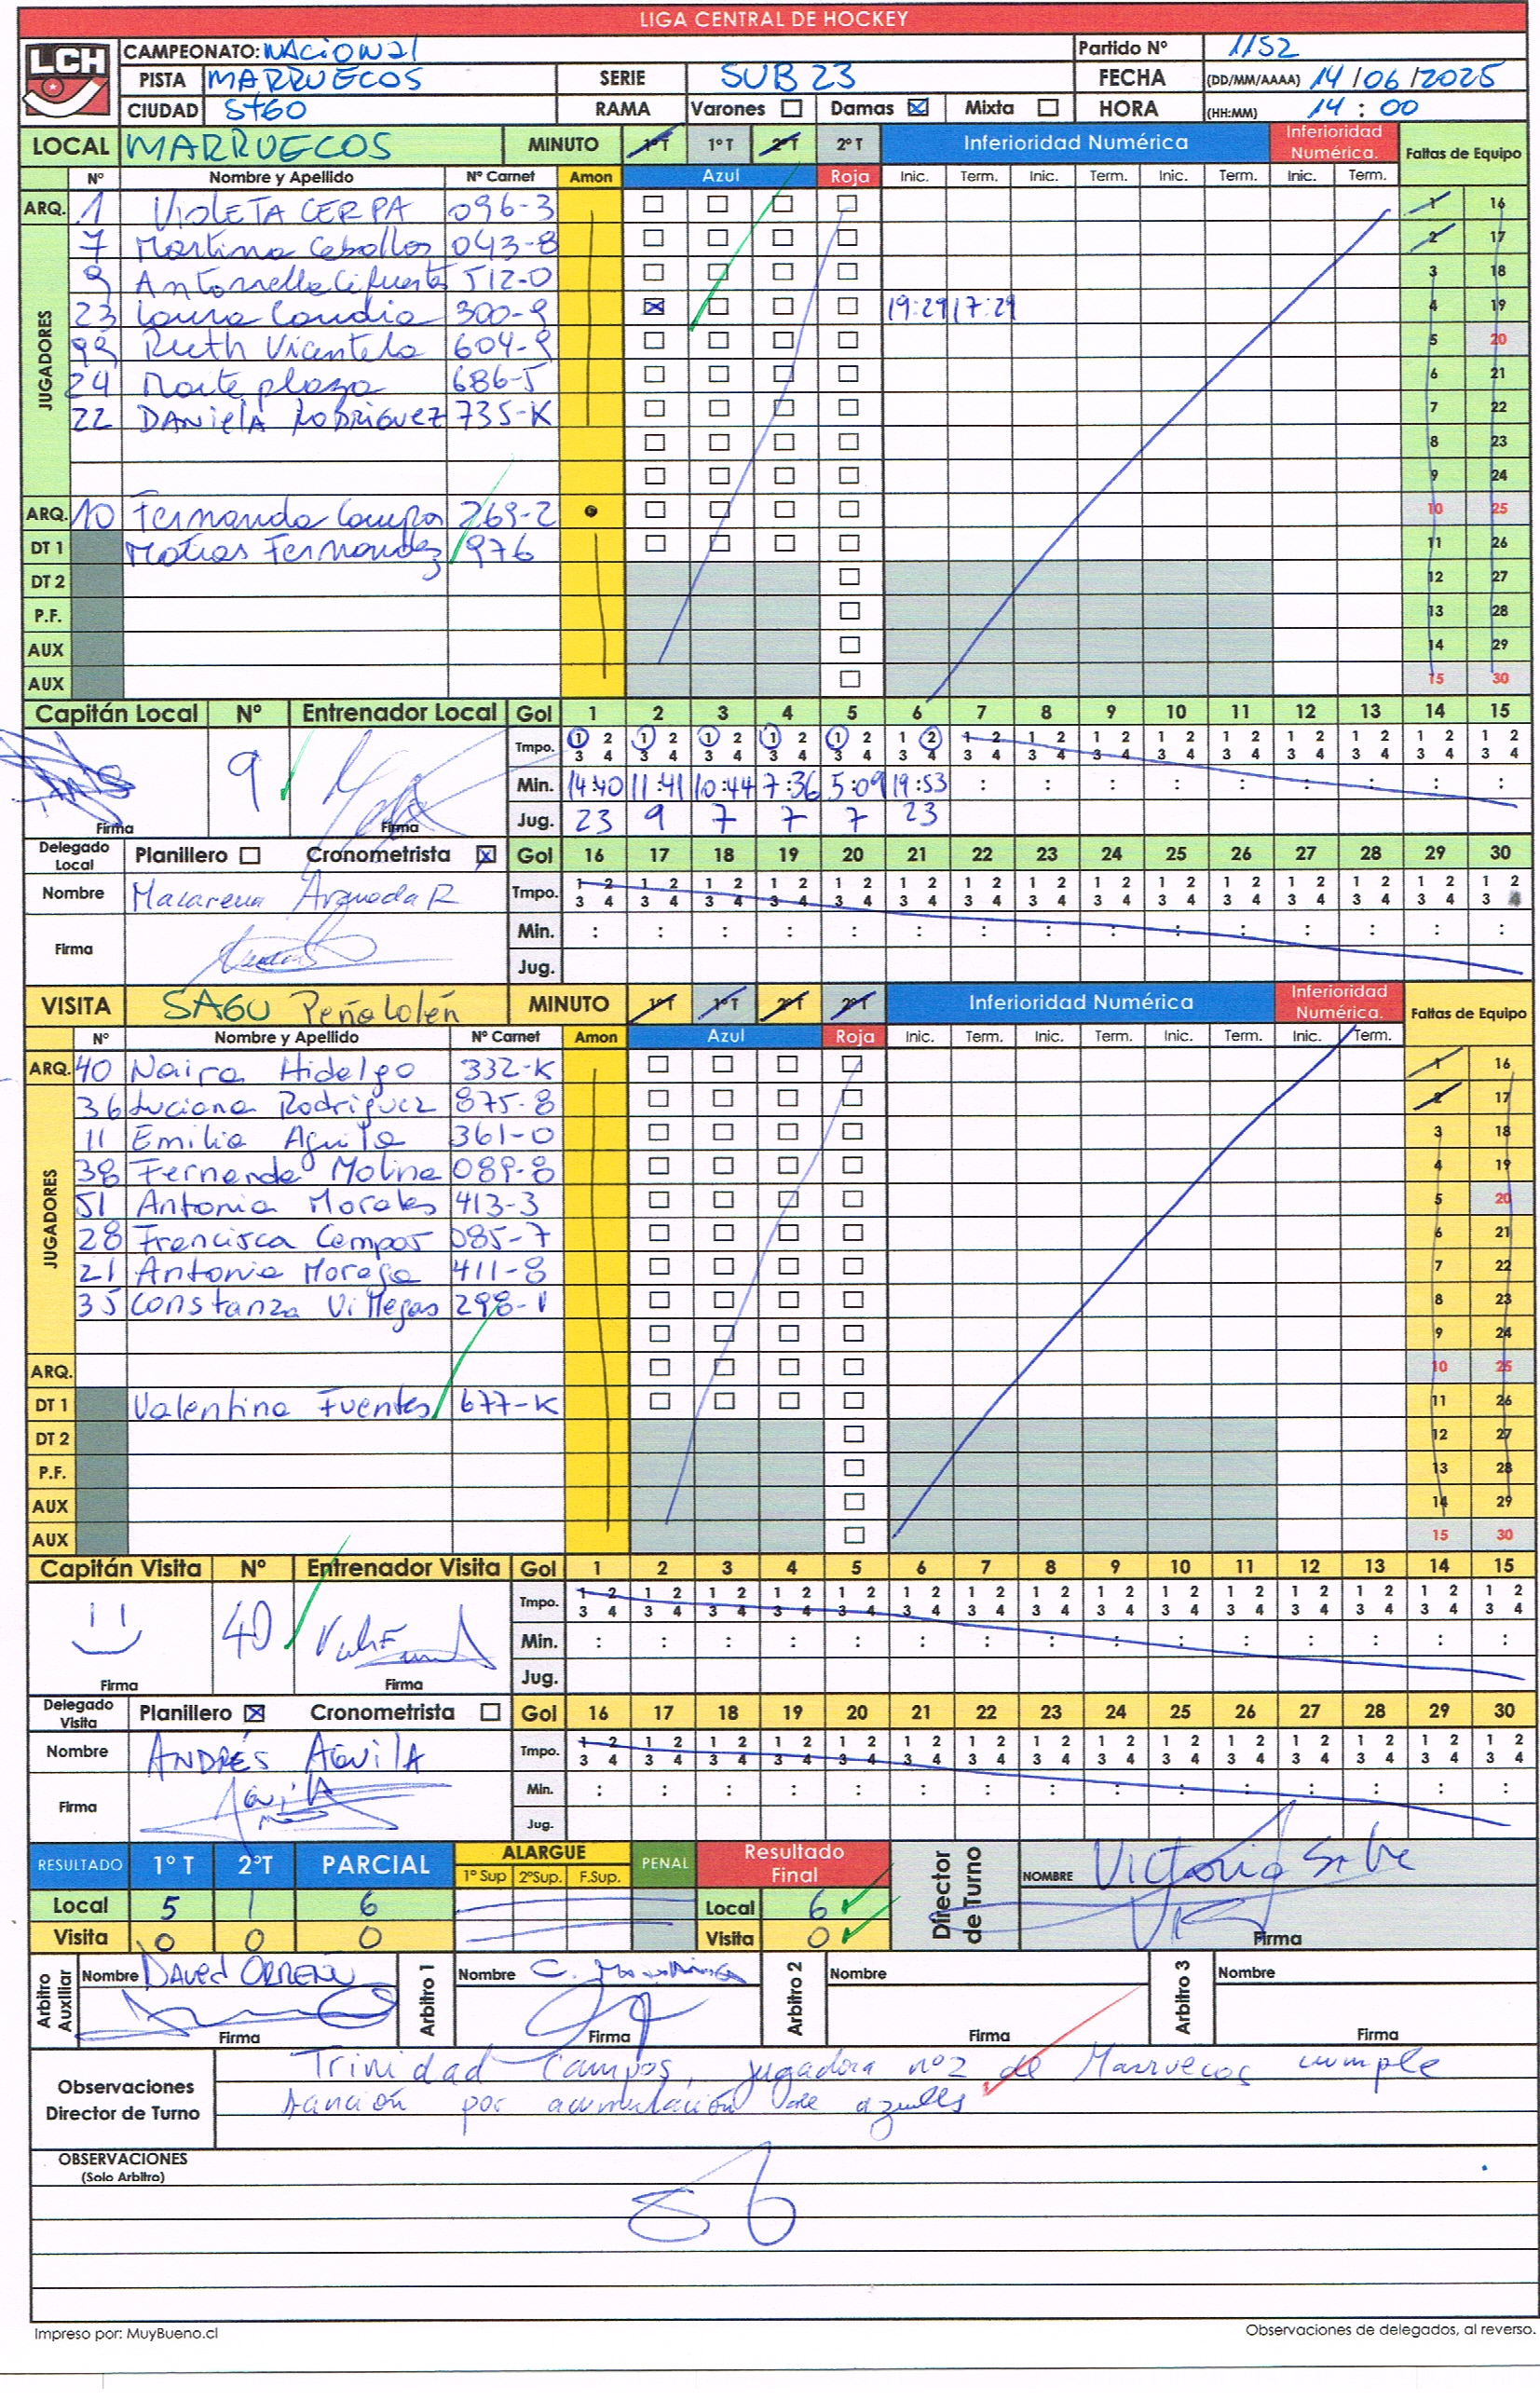 LIGA CENTRAL DE HOCKEY
LCH
CAMPEONATO: NACIONAl Partido Nº 1152
PISTA MARRUECOS SERIE SUB 23 FECHA (DD/MM/AAAA) 14/06/2025
CIUDAD STGO RAMA Varones Damas Mixta HORA (HH:MM) 14:00
LOCAL MARRUECOS MINUTO 1ºT 1ºT 2ºT 2ºT Inferioridad Numérica Inferioridad Numérica. Faltas de Equipo
Nº Nombre y Apellido Nº Carnet Amon Azul Roja Inic. Term. Inic. Term. Inic. Term. Inic. Term.
ARQ. 1 VIOLETA CERPA 096-3 1 16
JUGADORES
7 Martina Ceballos 043-8 2 17
9 Antonella Cifuentes 512-0 3 18
23 Laura Candia 300-9 19:29 17:29 4 19
99 Ruth Vicentelo 604-9 5 20
24 Maite plaza 686-5 6 21
22 DANIELA RODRIGUEZ 735-K 7 22
8 23
9 24
ARQ. 10 Fernanda Campos 269-2 10 25
DT 1 Matias Fernandez 976 11 26
DT 2 12 27
P.F. 13 28
AUX 14 29
AUX 15 30
Capitán Local Nº Entrenador Local Gol 1 2 3 4 5 6 7 8 9 10 11 12 13 14 15
Tmpo. 1 2 1 2 1 2 1 2 1 2 1 2 1 2 1 2 1 2 1 2 1 2 1 2 1 2 1 2 1 2
3 4 3 4 3 4 3 4 3 4 3 4 3 4 3 4 3 4 3 4 3 4 3 4 3 4 3 4 3 4
9 Min. 14:40 11:41 10:44 7:36 5:09 19:53 : : : : : : : : :
Firma Firma Jug. 23 9 7 7 7 23
Delegado Local Planillero Cronometrista Gol 16 17 18 19 20 21 22 23 24 25 26 27 28 29 30
Nombre Macarena Araneda R Tmpo. 1 2 1 2 1 2 1 2 1 2 1 2 1 2 1 2 1 2 1 2 1 2 1 2 1 2 1 2 1 2
3 4 3 4 3 4 3 4 3 4 3 4 3 4 3 4 3 4 3 4 3 4 3 4 3 4 3 4 3 4
Firma Min. : : : : : : : : : : : : : : :
Jug.
VISITA SAGU Peñalolén MINUTO 1ºT 1ºT 2ºT 2ºT Inferioridad Numérica Inferioridad Numérica. Faltas de Equipo
Nº Nombre y Apellido Nº Carnet Amon Azul Roja Inic. Term. Inic. Term. Inic. Term. Inic. Term.
ARQ. 40 Naira Hidalgo 332-K 1 16
JUGADORES
36 Luciana Rodriguez 875-8 2 17
11 Emilia Aguila 361-0 3 18
38 Fernanda Molina 089-8 4 19
51 Antonia Morales 413-3 5 20
28 Francisca Campos 085-7 6 21
21 Antonia Moraga 411-8 7 22
35 Constanza Villegas 298-1 8 23
9 24
ARQ. 10 25
DT 1 Valentina Fuentes 677-K 11 26
DT 2 12 27
P.F. 13 28
AUX 14 29
AUX 15 30
Capitán Visita Nº Entrenador Visita Gol 1 2 3 4 5 6 7 8 9 10 11 12 13 14 15
Tmpo. 1 2 1 2 1 2 1 2 1 2 1 2 1 2 1 2 1 2 1 2 1 2 1 2 1 2 1 2 1 2
3 4 3 4 3 4 3 4 3 4 3 4 3 4 3 4 3 4 3 4 3 4 3 4 3 4 3 4 3 4
40 Min. : : : : : : : : : : : : : : :
Firma Firma Jug.
Delegado Visita Planillero Cronometrista Gol 16 17 18 19 20 21 22 23 24 25 26 27 28 29 30
Nombre ANDRÉS AGUILA Tmpo. 1 2 1 2 1 2 1 2 1 2 1 2 1 2 1 2 1 2 1 2 1 2 1 2 1 2 1 2 1 2
3 4 3 4 3 4 3 4 3 4 3 4 3 4 3 4 3 4 3 4 3 4 3 4 3 4 3 4 3 4
Firma Min. : : : : : : : : : : : : : : :
Jug.
RESULTADO 1º T 2ºT PARCIAL ALARGUE PENAL Resultado Final Director de Turno NOMBRE Victoria
1º Sup 2ºSup. F.Sup.
Local 5 1 6 Local 6
Visita 0 0 0 Visita 0 Firma
Arbitro Auxiliar Nombre Arbitro 1 Nombre C. Arbitro 2 Nombre Arbitro 3 Nombre
Firma Firma Firma Firma
Observaciones Director de Turno
Trinidad Campos, jugadora nº2 de Marruecos cumple
sanción por acumulación de azules
OBSERVACIONES
(Solo Arbitro)
Impreso por: MuyBueno.cl Observaciones de delegados, al reverso.